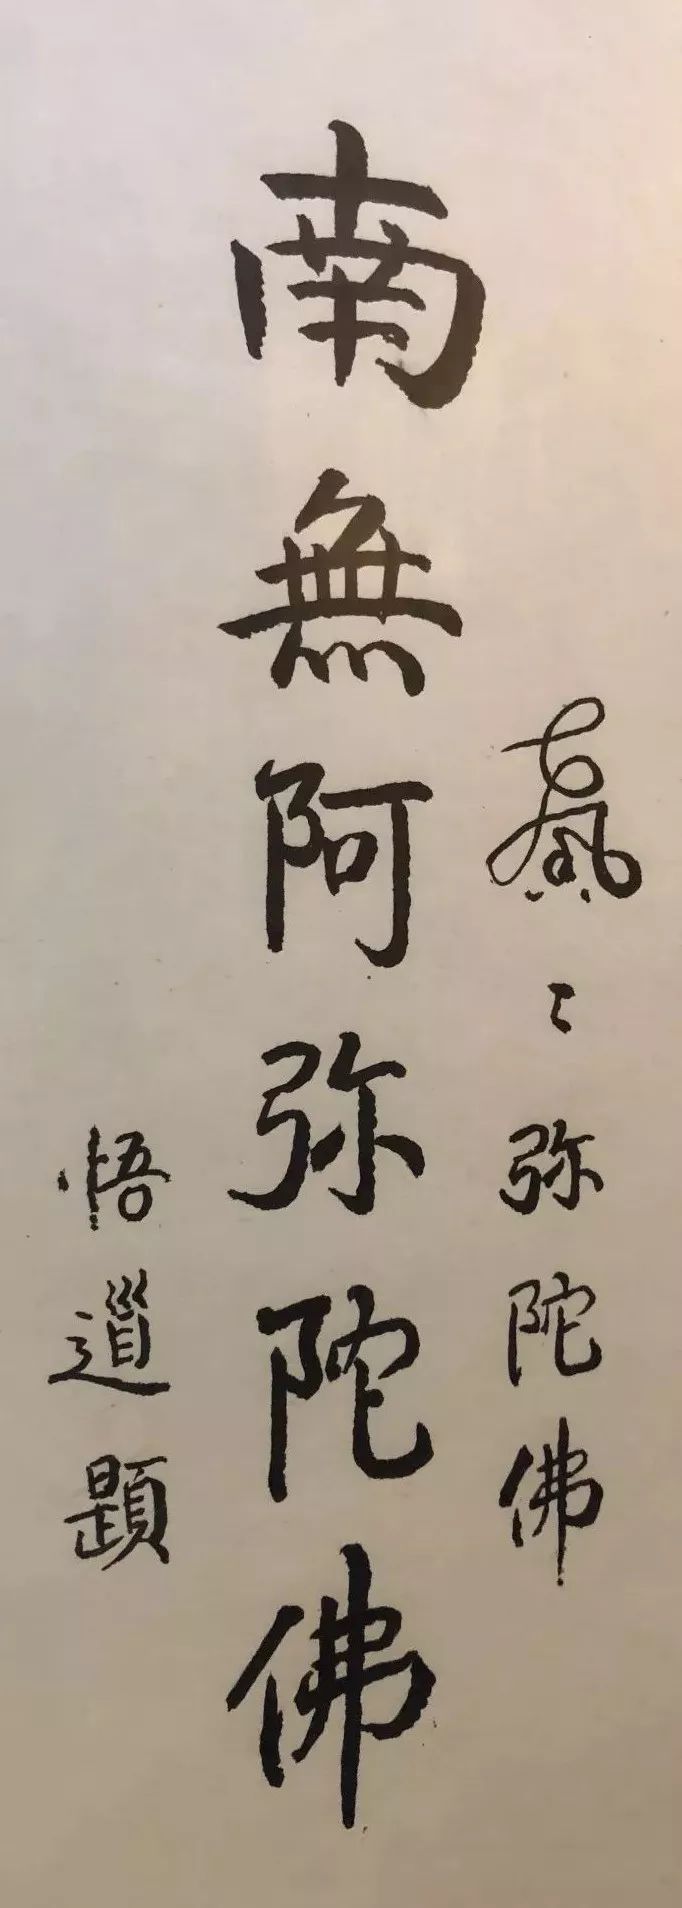 〻弥陀佛
南無阿弥陀佛
悟道題